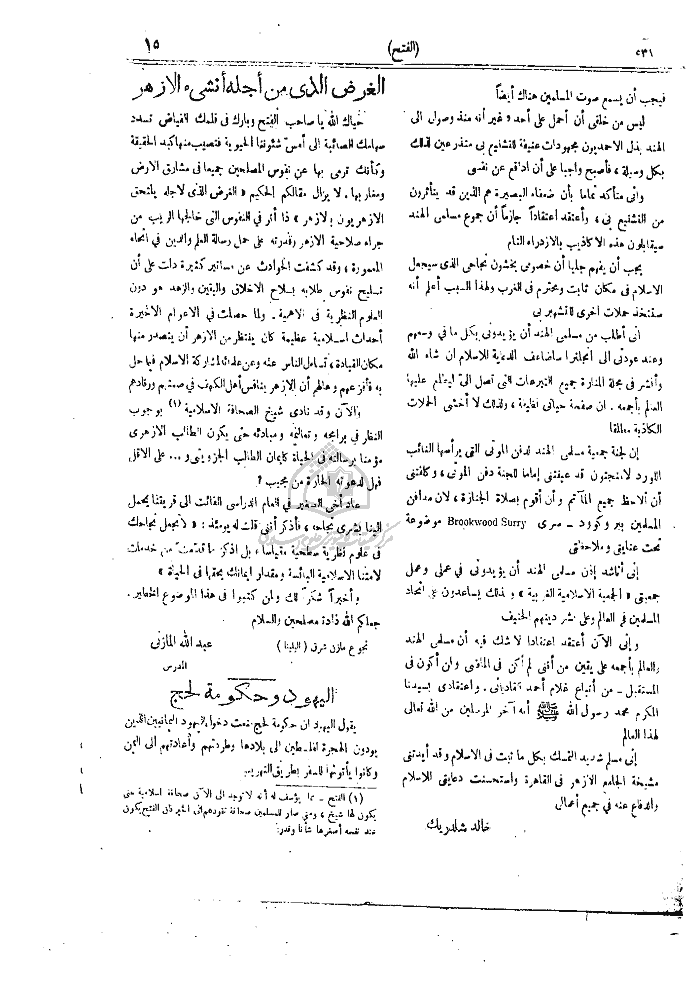 ٥٣١
(الفتح)
١٥
فيجب أن يسمع صوت المسلمين هناك أيضاً
ليس من خلقى أن أحمل على أحد ، غير أنه منذ وصولى الى
الهند بذل الاحمديون مجهودات عنيفة للتشنيع بى متذرعين لذلك
بكل وسيلة ، فأصبح واجبا على أن ادافع عن نفسى
وانى متأكد تماما بأن ضعفاء البصيرة هم الذين قد يتأثرون
من التشنيع بى ، وأعتقد اعتقاداً جازماً أن جموع مسلمى الهند
سيقابلون هذه الاكاذيب بالازدراء التام
يجب أن يفهم جليا أن خصومى يخشون نجاحى الذى سيجعل
الاسلام فى مكان ثابت ومحترم فى الغرب ولهذا السبب أعلم أنه
ستتخذ حملات اخرى للتشهير بى
انى أطلب من مسلمى الهند أن يؤيدونى بكل ما فى وسعهم
وعند عودتى الى انجلترا سأضاعف الدعاية للاسلام ان شاء الله
وأنشر فى مجلة المنارة جميع التبرعات التى تصل الى ليطلع عليها
العالم بأجمعه . ان صفحة حياتى نظيفة ، ولذلك لا أخشى الحملات
الكاذبة مطلقا
إن لجنة جمعية مسلمى الهند لدفن الموتى التى يرأسها النائب
اللورد لامنجتون قد عينتنى إماما للجنة دفن الموتى ، وكلفتنى
أن ألاحظ جميع المآتم وأن أقوم بصلاة الجنازة ، لان مدافن
المسلمين ببروكوود ــ سرى Brookwood Surry موضوعة
تحت عنايتى وملاحظتى
إنى أناشد إذن مسلمى الهند أن يؤيدونى فى عملى وعمل
جمعيتى « الجمعية الاسلامية الغربية » وبذلك يساعدون على اتحاد
المسلمين فى العالم وعلى نشر دينهم الحنيف
و إنى الآن أعتقد اعتقادا لاشك فيه أن مسلمى الهند
والعالم بأجمعه على يقين من أننى لم أكن فى الماضى ولن أكون فى
المستقبل ــ من أتباع غلام أحمد القاديانى . واعتقادى بسيدنا
المكرم محمد رسول الله ﷺ أنه آخر المرسلين من الله تعالى
لهذا العالم
إنى مسلم شديد التمسك بكل ما ثبت فى الاسلام وقد أيدتنى
مشيخة الجامع الازهر فى القاهرة واستحسنت دعايتى للاسلام
والدفاع عنه فى جميع أعمالى
خالد شلدريك
الغرض الذى من أجله أنشىء الازهر
حياك الله يا صاحب الفتح وبارك فى قلمك الفياض تسدد
سهامك الصائبة الى أمس شئوننا الحيوية فتصيب منها كبد الحقيقة
وكأنك ترمى بها عن نفوس المصلحين جميعا فى مشارق الارض
ومغاربها . لا يزال مقالكم الحكيم « الغرض الذى لاجله يلتحق
الازهريون بالازهر » ذا أثر فى النفوس التى خالجها الريب من
جراء صلاحية الازهر وقدرته على حمل رسالة العلم والدين فى انحاء
المعمورة ، وقد كشفت الحوادث عن مساتير كثيرة دلت على أن
تسليح نفوس طلابه بسلاح الاخلاق واليقين والزهد هو دون
العلوم النظرية فى الاهمية . ولما حصلت فى الاعوام الاخيرة
أحداث اسلامية عظيمة كان ينتظر من الازهر أن يتصدر منها
مكان القيادة ، تساءل الناس عنه وعن علمائه لمشاركة الاسلام فيما حل
به فأفزعهم وهالهم أن الازهر ينافس أهل الكهف فى صمتهم ورقادهم
والآن وقد نادى شيخ الصحافة الاسلامية (١) بوجوب
النظر فى برامجه وتعاليمه ومبادئه حتى يكون الطالب الازهرى
مؤمنا برسالته فى الحياة كايمان الطالب الجزويتى و ... على الاقل
فهل لدعوته الحارة من مجيب ؟
عاد أخى الصغير فى العام الدراسى الفائت الى قريتنا يحمل
الينا بشرى نجاحه ، فأذكر أننى قلت له يومئذ : « لا تجعل نجاحك
فى علوم نظرية سطحية مقياسا ، بل اذكر ما قدمت من خدمات
لامتنا الاسلامية البائسة ومقدار ايمانك بحقها فى الحياة »
وأخيراً شكراً لك ولمن كتبوا فى هذا الموضوع الخطير .
جعلكم الله قادة مصلحين والسلام
نجوع مازن شرق ( البلينا )
عبد الله المازنى
المدرس
اليهود وحكومة لحج
يقول اليهود ان حكومة لحج منعت دخول اليهود اليمانيين الذين
يودون الهجرة لفلسطين الى بلادها وطردتهم وأعادتهم الى اليمن
وكانوا يأتونها للسفر بطريق التهريب
(١) الفتح ــ مما يؤسف له أنه لا توجد الى الآن صحافة اسلامية حتى
يكون لها شيخ ، ومتى صار للمسلمين صحافة تقودهم الى الخير فان الفتح يكون
عند نفسه أصغرها شأنا وقدرا